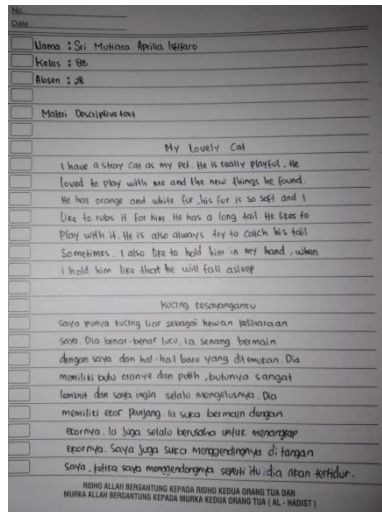 No.
Date
Nama : Sri Mutiara Aprilia
Kelas : 8B
Absen : 28
Materi Descriptive text
My Lovely Cat
I have a stray cat as my pet. He is really playful. He
loved to play with me and the new things he found.
He has orange and white fur, his fur is so soft and I
like to rubs it for him. He has a long tail. He likes to
Play with it. He is also always try to catch his tail
Sometimes. I also like to hold him in my hand, when
I hold him like that he will fall asleep
Kucing kesayanganku
Saya punya kucing liar sebagai hewan peliharaan
saya. Dia benar-benar lucu, Ia senang bermain
dengan saya dan hal-hal baru yang ditemukan. Dia
memiliki bulu oranye dan putih, bulunya sangat
lembut dan saya ingin selalu mengelusnya. Dia
memiliki ekor panjang. Ia suka bermain dengan
ekornya. Ia juga selalu berusaha untuk menangkap
ekornya. Saya juga suka menggendongnya di tangan
Saya, ketika saya menggendongnya seperti itu dia akan tertidur.
RIDHO ALLAH BERGANTUNG KEPADA RIDHO KEDUA ORANG TUA DAN
MURKA ALLAH BERGANTUNG KEPADA MURKA KEDUA ORANG TUA ( AL - HADIST )